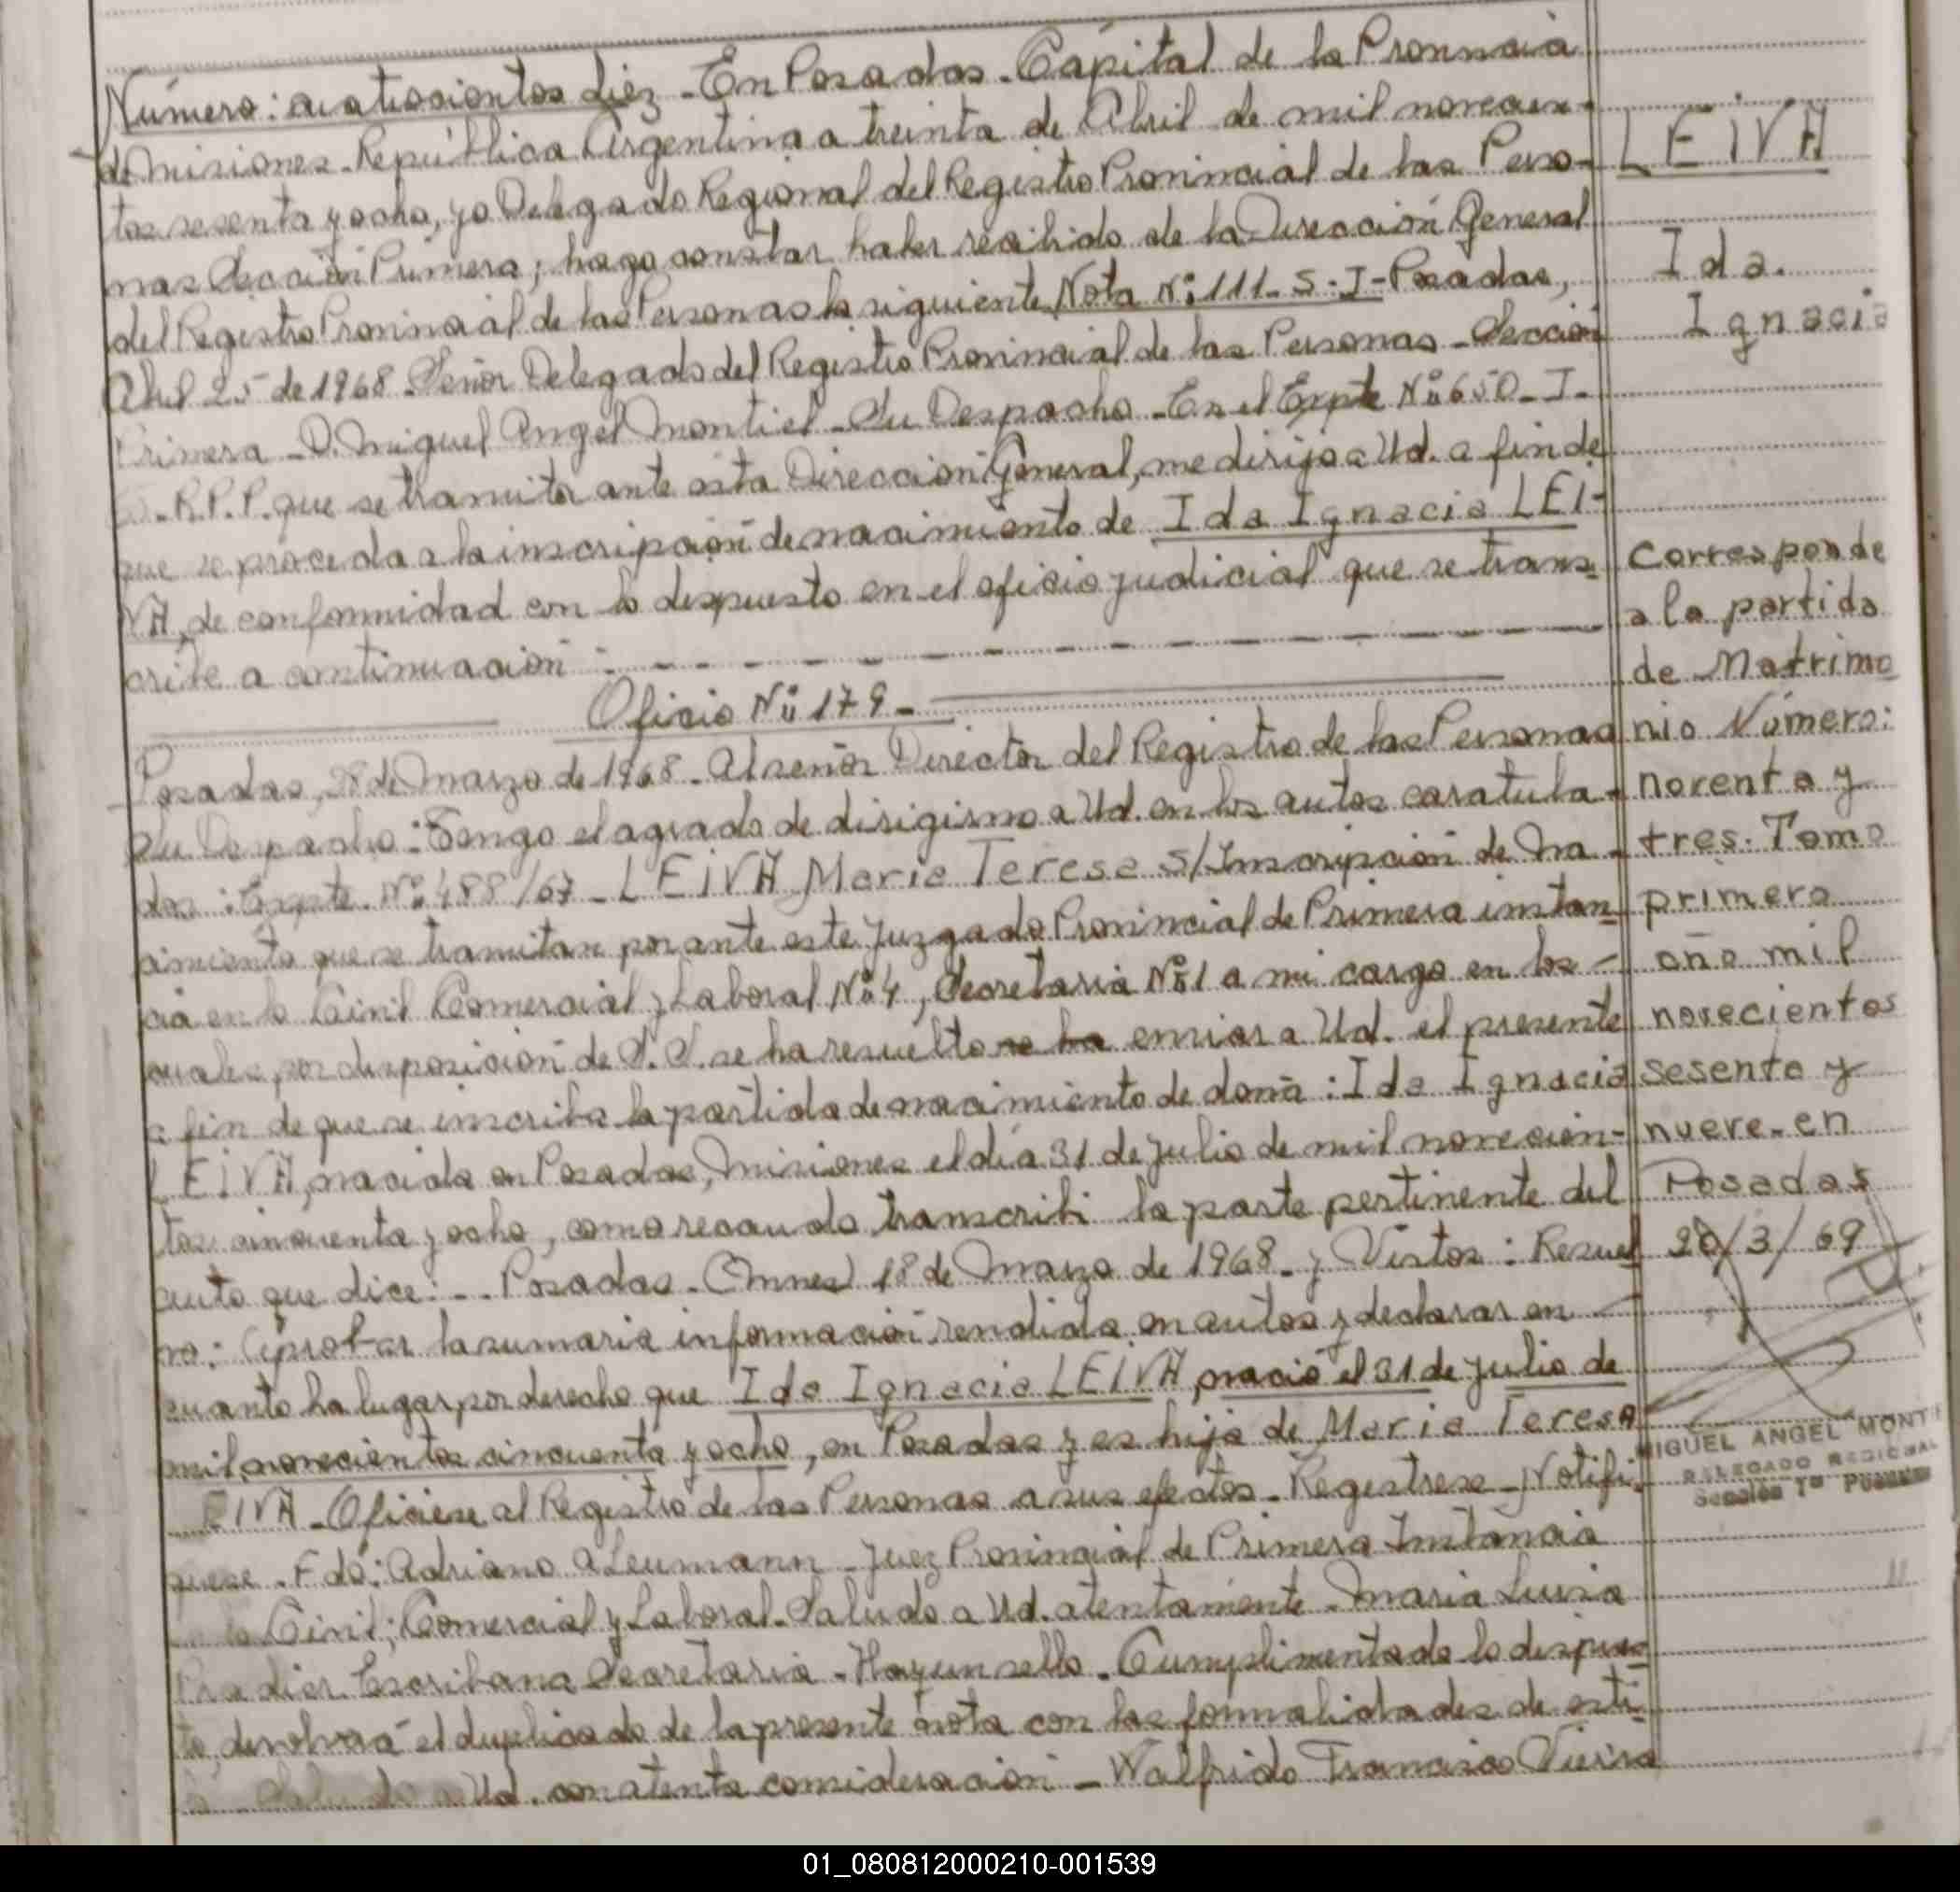 Número: cuatrocientos diez - En Posadas - Capital de la Provincia
de Misiones - República Argentina a treinta de Abril de mil novecien-
tos sesenta y ocho, yo Delegado Regional del Registro Provincial de las Perso-
nas Sección Primera; hago constar haber recibido de la Dirección General
del Registro Provincial de las Personas la siguiente Nota Nº 111 - S - I - Posadas,
Abril 25 de 1968 - Señor Delegado del Registro Provincial de las Personas - Sección
Primera - D. Miguel Angel Montiel - Su Despacho - En el Expte Nº 650 - I -
R.P.P. que se tramita ante esta Dirección General, me dirijo a Ud. a fin de
que se proceda a la inscripción de nacimiento de Ida Ignacia LEI-
VA, de conformidad con lo dispuesto en el oficio judicial que se trans-
cribe a continuación :
Oficio Nº 179 -
Posadas, 28 de Marzo de 1968 - Al señor Director del Registro de las Personas
Su Despacho: Tengo el agrado de dirigirme a Ud. en los autos caratula-
dos: Expte. Nº 488/67 - LEIVA Maria Teresa S/Inscripción de Na-
cimiento que se tramitan por ante este Juzgado Provincial de Primera instan-
cia en lo Civil Comercial y Laboral Nº 4, Secretaria Nº 1 a mi cargo en los -
cuales, por disposición de S.S. se ha resuelto se ha enviar a Ud. el presente
a fin de que se inscriba la partida de nacimiento de doña: Ida Ignacia
LEIVA, nacida en Posadas, Misiones el día 31 de julio de mil novecien-
tos cincuenta y ocho, como recaudo transcribi la parte pertinente del
auto que dice: - Posadas - (Mnes) 18 de Marzo de 1968 - y Vistos: Resuel
vo: Aprobar la sumaria información rendida en autos y declarar en -
cuanto ha lugar por derecho que Ida Ignacia LEIVA, nació el 31 de julio de
mil novecientos cincuenta y ocho, en Posadas y es hija de Maria Teresa
LEIVA - Oficiese al Registro de las Personas a sus efectos - Registrese - Notifi-
quese - Fdo: Adriano A Leumann - Juez Provincial de Primera Instancia
lo Civil; Comercial y Laboral - Saludo a Ud. atentamente - Maria Luisa
Pradier Escribana Secretaria - Hay un sello - Cumplimentado lo dispues-
to, devolverá el duplicado de la presente nota con las formalidades de esti-
lo Saludo a Ud. con atenta consideración - Walfrido Francisco Vieira
LEIVA
Ida
Ignacia
Corresponde
a la partida
de Matrimo
nio Número:
noventa y
tres. Tomo
primero
año mil
novecientos
sesenta y
nueve - en
Posadas
20/3/69
MIGUEL ANGEL MONTI
DELEGADO REGIONAL
Sección 1ª
01_080812000210-001539